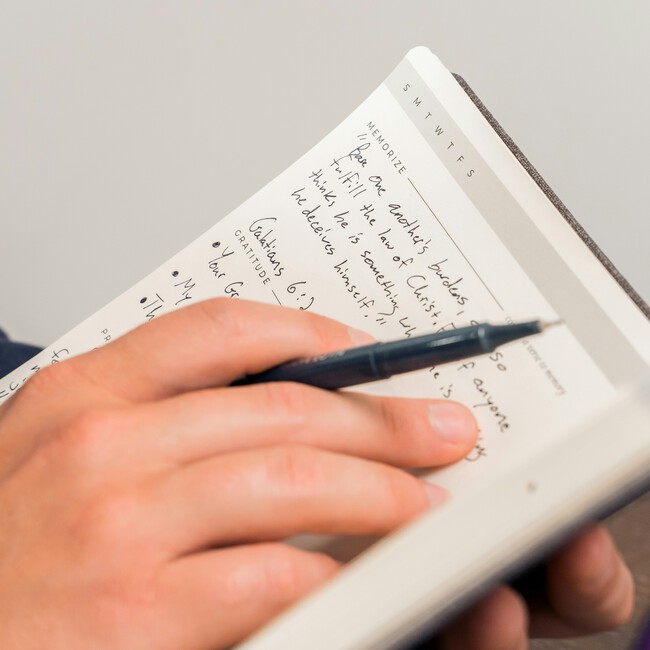 S M T W T F S
MEMORIZE
"Bear one another's burdens, so
fulfill the law of Christ. if anyone
thinks he is something wh he is
he deceives himself."
Galatians 6:2
GRATITUDE
• Your Gr
• My
• Th
PR
verse to memory